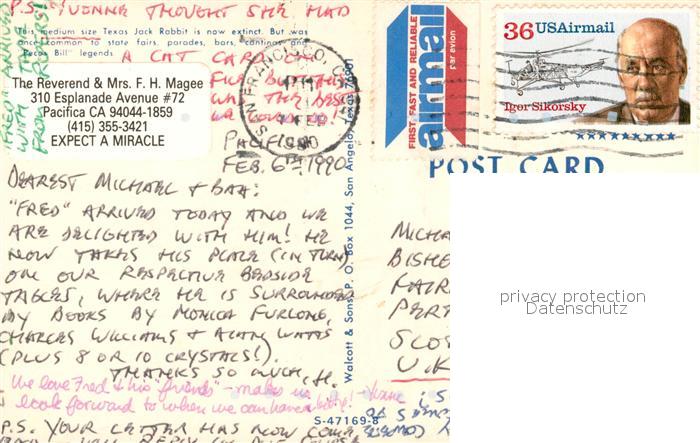 P.S. YVONNE THOUGHT SHE HAD
This medium size Texas Jack Rabbit is now extinct. But was
once common to state fairs, parades, bars, cantinas, and
Pecos Bill legends
A CAT CARD OR
"FRED" ARRIVED
WITH
FROM
The Reverend & Mrs. F. H. Magee
310 Esplanade Avenue #72
Pacifica CA 94044-1859
(415) 355-3421
EXPECT A MIRACLE
SAN FRANCISCO, CA
FEB
1990
PACIFICA
FEB. 6TH, 1990
DEAREST MICHAEL &
"FRED" ARRIVED TODAY AND WE
ARE DELIGHTED WITH HIM! HE
NOW TAKES HIS PLACE (IN TURN)
ON OUR RESPECTIVE BEDSIDE
TABLES, WHERE HE IS SURROUNDED
BY BOOKS BY MONICA FURLONG,
CHARLES WILLIAMS & ALAN WATTS
(PLUS 8 OR 10 CRYSTALS!).
THANKS SO MUCH, H.
We love Fred & his "friends" - makes us
look forward to when we can have a
P.S. YOUR LETTER HAS NOW COME
Walcott & Sons, P. O. Box 1044, San Angelo, Texas 76901
S-47169-8
FIRST, FAST AND RELIABLE
airmail
par avion
36 USAirmail
Igor Sikorsky
POST CARD
MICHA
BISHE
FAIR
PERT
SCO
U.K
privacy protection
Datenschutz